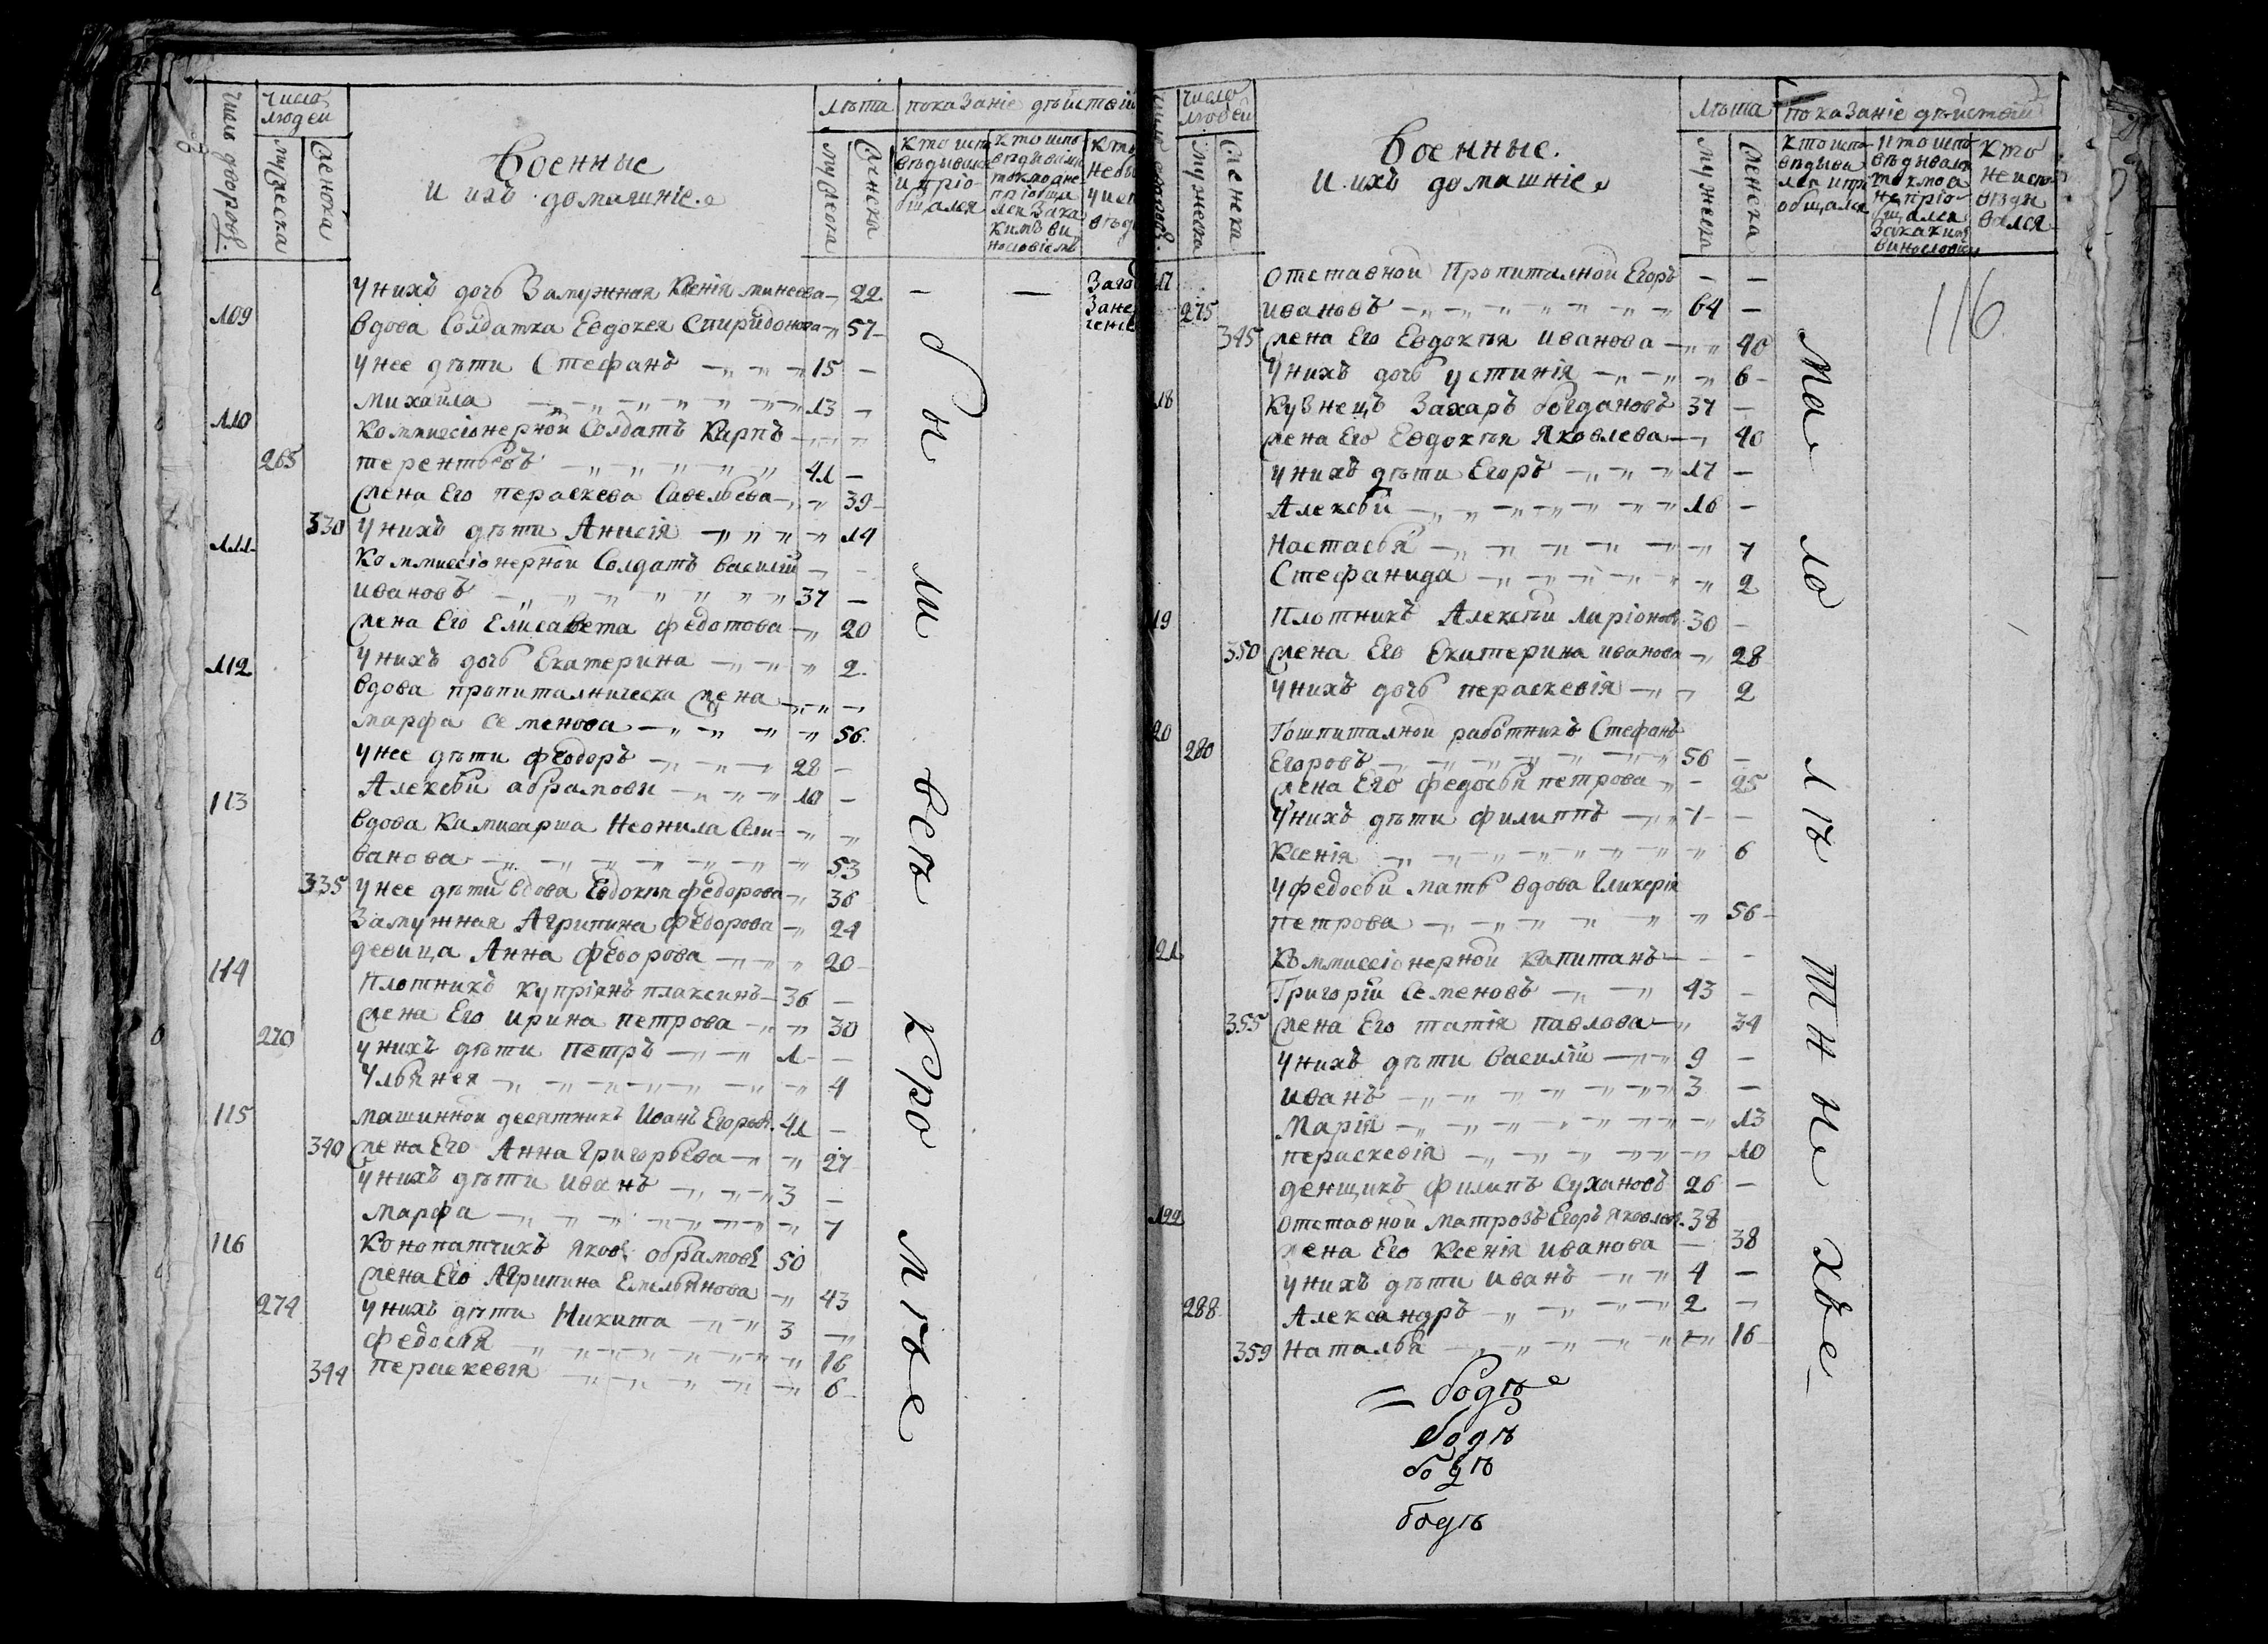 число дворовъ.
число людей
мужеска
женска
Военные
и ихъ домашніе
лѣта
мужеска
женска
показаніе дѣйствій
кто исповѣдывался и пріобщался
кто исповѣдывали токмо а не пріобщались за какимъ винословіемъ
У нихъ дочь замужная Ксенія минеева 22 — —
109 вдова Солдатка Евдокея Спиридонова 57
У нее дѣти Стефанъ 15 —
Михайла 13
110 Коммиссіонерной Солдатъ Карпъ
265 терентьевъ 41 —
жена Его пераскева Савельева 39
330 У нихъ дѣти Анисія 14
111 Коммиссіонерной Солдатъ василий
ивановъ 37 —
жена Его Елисавета федотова 20
112 У нихъ дочь Екатерина 2
вдова пропиталническа жена
марфа семенова 56
У нее дѣти феодоръ 28 —
Алексѣй абрамовы 10 —
113 вдова Камисарша Неонила Сели-
ванова 53
335 У нее дѣти вдова Евдокѣя федорова 36
Замужная Агрипина федорова 24
девица Анна федорова 20
114 Плотникъ купріянъ плаксинъ 36 —
жена Его ирина петрова 30
270 У нихъ дѣти Петръ 1 —
Ульянея 4
115 машинной десятникъ Иванъ Егоровъ 41 —
340 жена Его Анна Григорьева 27
У нихъ дѣти иванъ 3 —
марфа 7
116 Конопатчикъ яковъ абрамовъ 50
жена Его Агрипина Емельянова 43
274 У нихъ дѣти Никита 3
федосія 16
344 пераскевія 6
были всѣ кромѣ
число людей
мужеска
женска
Военные.
И ихъ домашніе
лѣта
мужеска
женска
показаніе дѣйствій
кто исповѣдывался и пріобщался
кто исповѣдывался токмо а не пріобщался за какимъ винословіем
кто не исповѣдывался
116
17 Отставной Пропиталной Егоръ — —
275 ивановъ 64 —
345 жена Его Евдокѣя иванова 40
У нихъ дочь устинія 6
18 Кузнецъ Захаръ богдановъ 37 —
жена Его Евдокѣя Яковлева 40
У нихъ дѣти Егоръ 17 —
Алексѣй 16 —
Настасья 7
Стефанида 2
19 Плотникъ Алексѣй ларіоновъ 30 —
350 жена Его Екатерина иванова 28
У нихъ дочь пераскевія 2
20 Гошпиталной работникъ Стефанъ
280 Егоровъ 56 —
жена Его федосья петрова 25
У нихъ дѣти филиппъ 7 —
Ксенія 6
У федосьи мать вдова Гликерія
петрова 56
121 Коммиссіонерной капитанъ — —
Григорій Семеновъ 43 —
355 жена Его татія павлова 34
У нихъ дѣти василий 9 —
иванъ 3 —
Марія 13
пераскевія 10
денщикъ филипъ сухановъ 26 —
122 Отставной матрозъ Егоръ яковлевъ 38
жена Его Ксенія иванова 38
У нихъ дѣти иванъ 4 —
288 Александръ 2
359 Наталья 16
малолѣтныхъ